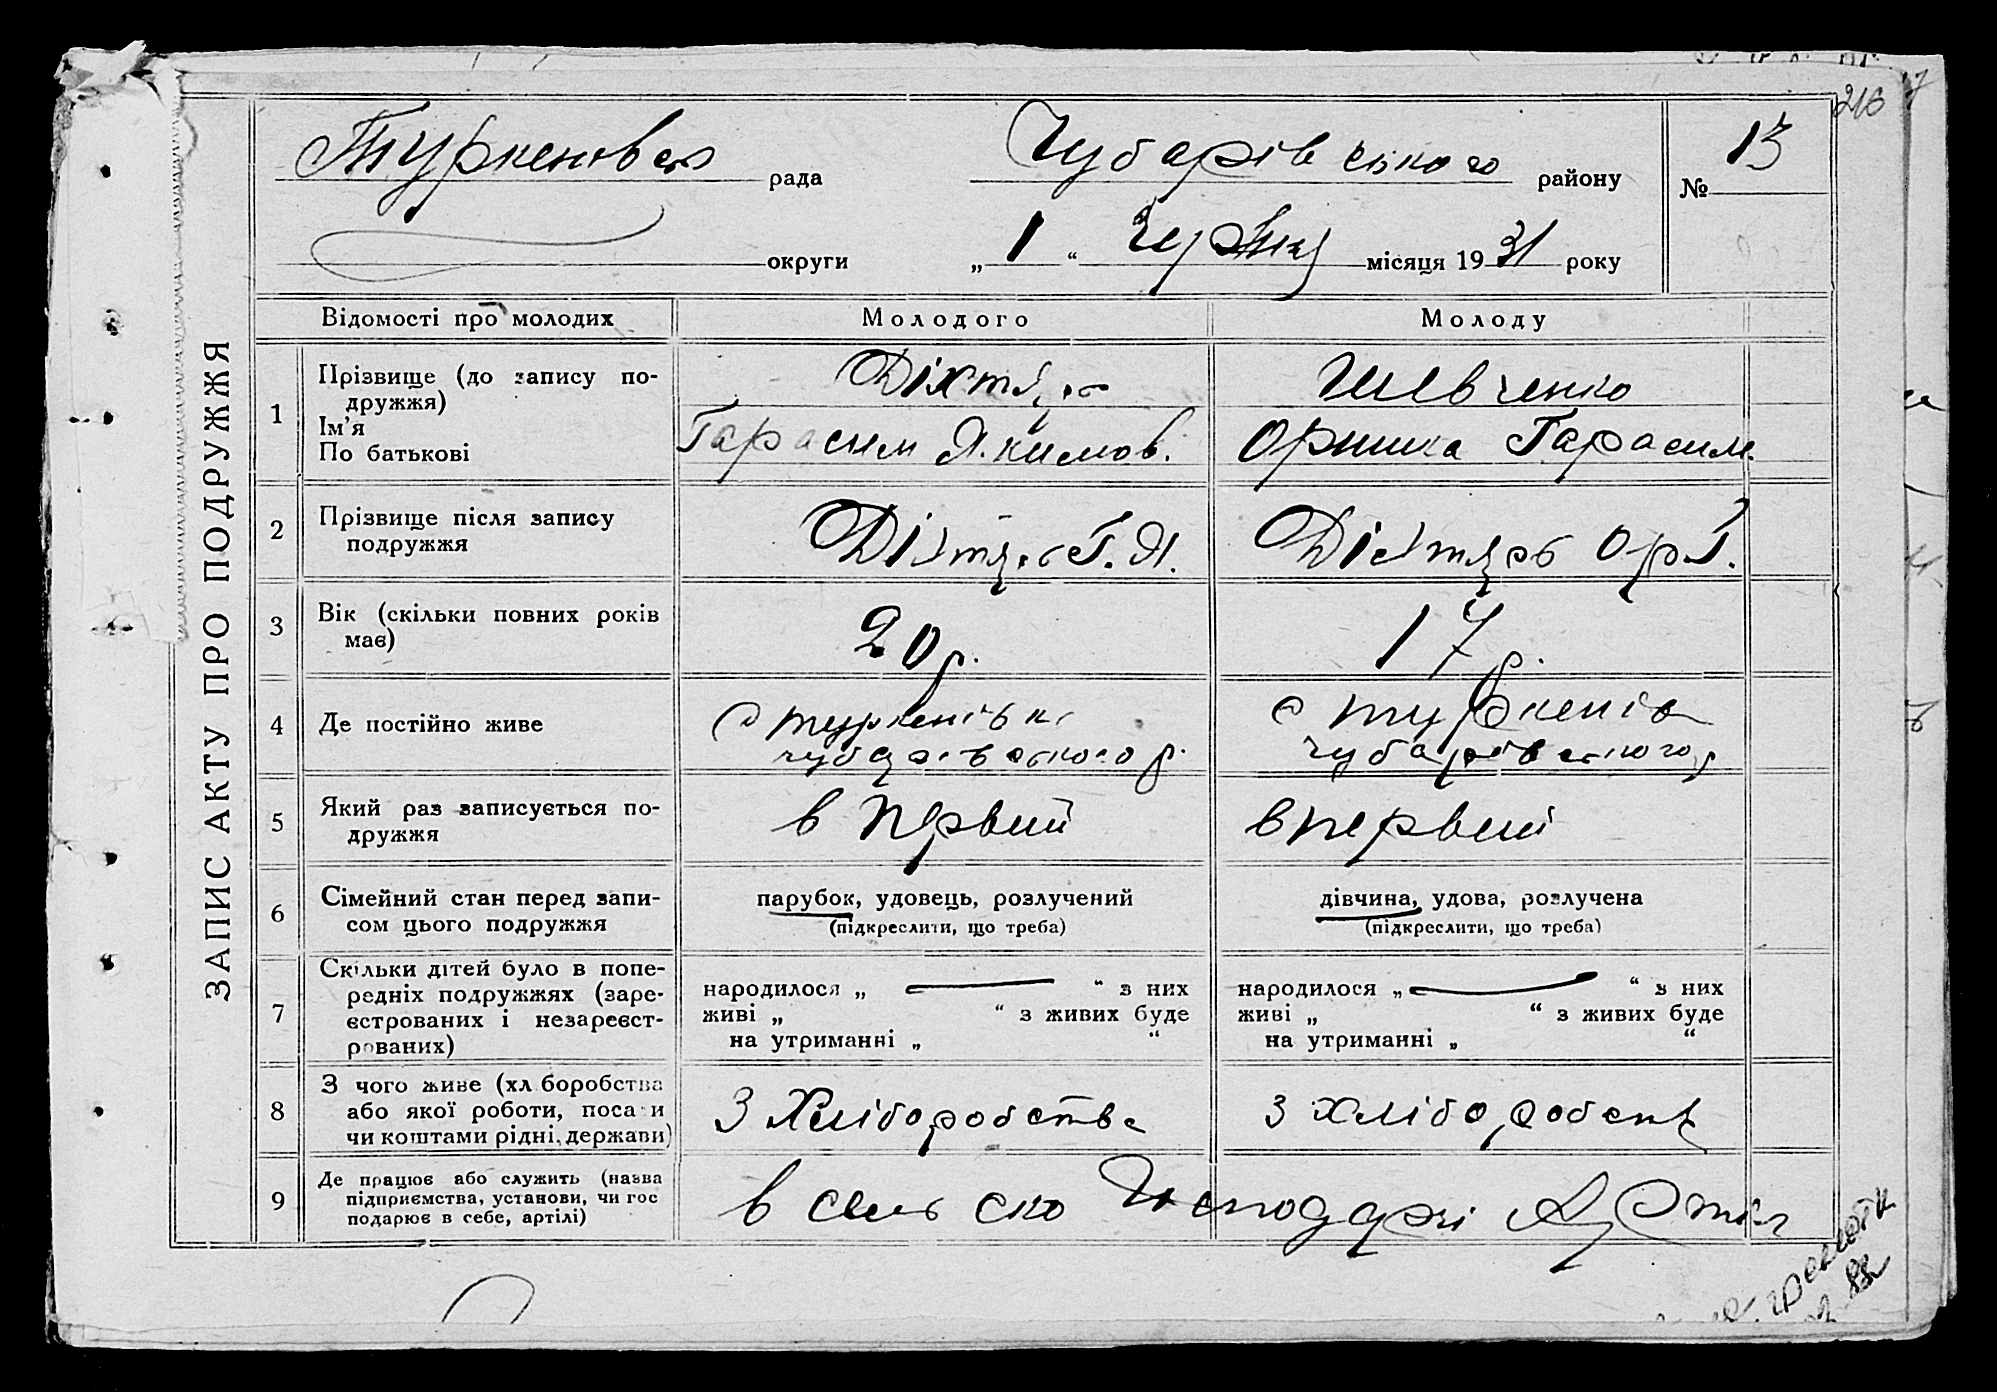 216
ЗАПИС АКТУ ПРО ПОДРУЖЖЯ
Туркеновська рада Чубарівського району № 13
округи „ 1 “ Червня місяця 1931 року
Відомості про молодих Молодого Молоду
1 Прізвище (до запису по-
дружжя)
Ім'я
По батькові
Діхтярь
Гарасим Якимов.
Шевченко
Оришка Гарасим.
2 Прізвище після запису
подружжя
Діхтярь Г. Я.
Діхтярь Ор Г.
3 Вік (скільки повних років
має)
20 р.
17 р.
4 Де постійно живе
с Туркенівки
чубарівського р.
с Туркенів
чубарівського р
5 Який раз записується по-
дружжя
в первий
в первий
6 Сімейний стан перед запи-
сом цього подружжя
парубок, удовець, розлучений
(підкреслити, що треба)
дівчина, удова, розлучена
(підкреслити, що треба)
7 Скільки дітей було в попе-
редніх подружжях (заре-
єстрованих і незареєст-
рованих)
народилося „ — “ з них
живі „ “ з живих буде
на утриманні „ “
народилося „ — “ з них
живі „ “ з живих буде
на утриманні „ “
8 З чого живе (хліборобства
або якої роботи, посади
чи коштами рідні, держави)
З Хліборобства
з хліборобств
9 Де працює або служить (назва
підприємства, установи, чи гос
подарює в себе, артілі)
в сельско Господарчі Артіл